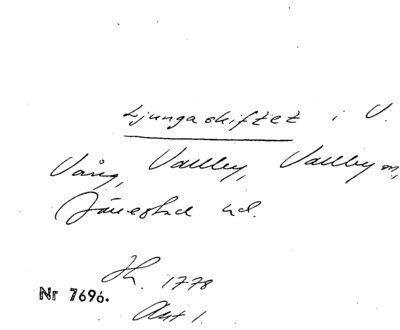 Ljungaskiftet i V.
Vång, Vallby, Vallby sn,
Järrestad hd.
H. 1778
Nr 7696.
Akt 1.